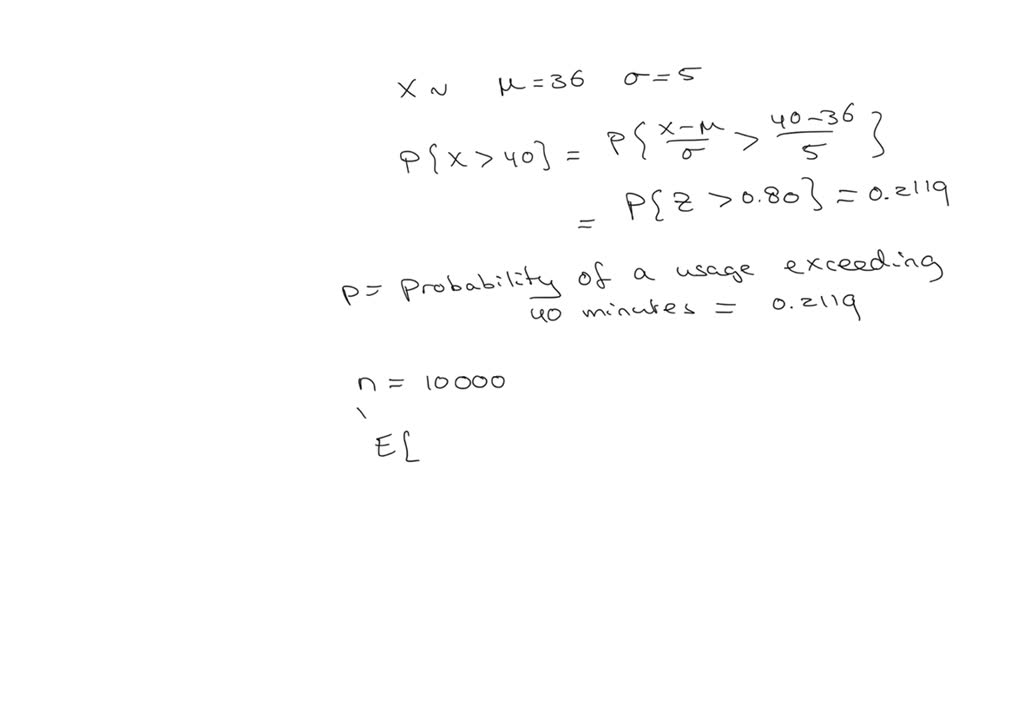 X ~ μ = 36 σ = 5
P{X > 40} = P{(X - μ)/σ > (40 - 36)/5}
= P{Z > 0.80} = 0.2119
P = Probability of a usage exceeding
40 minutes = 0.2119
n = 10000
E[